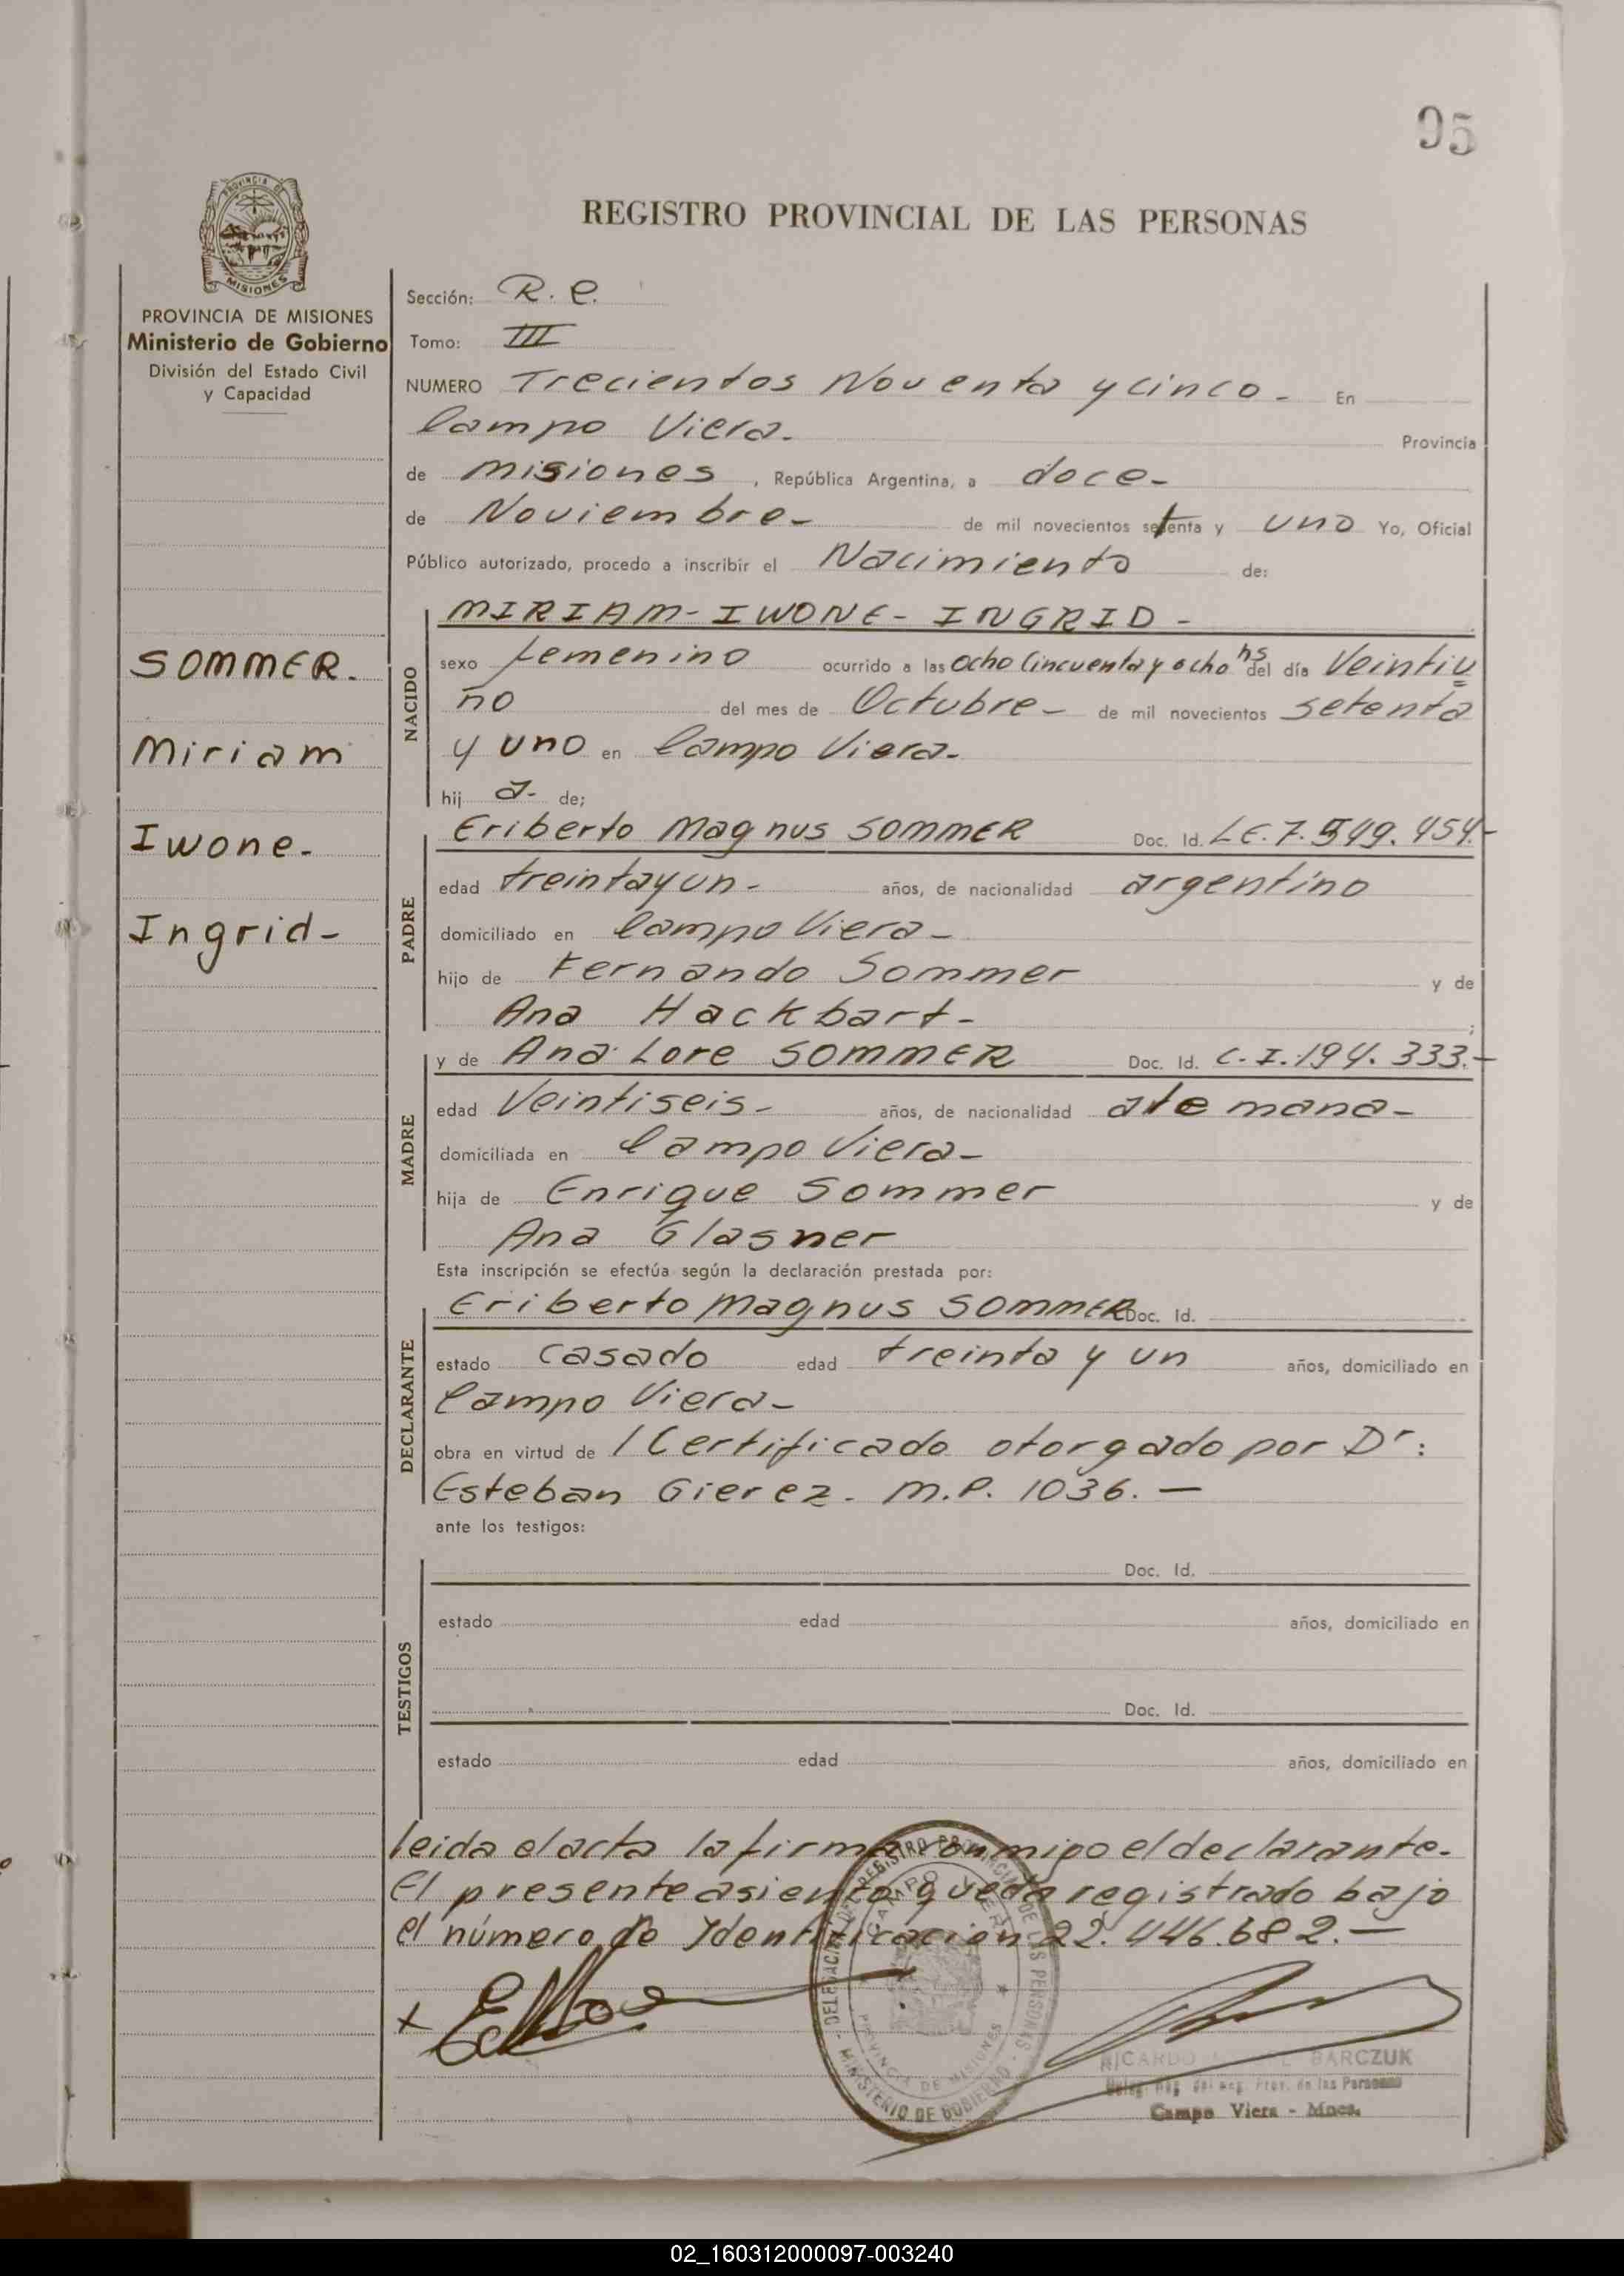 95
REGISTRO PROVINCIAL DE LAS PERSONAS
PROVINCIA DE
MISIONES
PROVINCIA DE MISIONES
Ministerio de Gobierno
División del Estado Civil
y Capacidad
SOMMER.
Miriam
Iwone.
Ingrid-
Sección: R. C.
Tomo: III
NUMERO Trecientos Noventa y cinco - En
Campo Viera. Provincia
de misiones, República Argentina, a doce-
de Noviembre- de mil novecientos setenta y uno Yo, Oficial
Público autorizado, procedo a inscribir el Nacimiento de:
NACIDO
MIRIAM- IWONE- INGRID -
sexo femenino ocurrido a las ocho Cincuenta y ocho hs del día Veintiu
no del mes de Octubre- de mil novecientos setenta
y uno en Campo Viera-
hij a- de;
PADRE
Eriberto Magnus SOMMER Doc. Id. L.E. 7. 549. 454.-
edad treinta y un- años, de nacionalidad argentino
domiciliado en Campo Viera-
hijo de Fernando Sommer y de
Ana Hackbart- ;
MADRE
y de Ana Lore SOMMER Doc. Id. C. I. 194. 333.-
edad Veintiseis- años, de nacionalidad alemana-
domiciliada en Campo Viera-
hija de Enrique Sommer y de
Ana Glasner
Esta inscripción se efectúa según la declaración prestada por:
DECLARANTE
Eriberto Magnus SOMMER Doc. Id.
estado casado edad treinta y un años, domiciliado en
Campo Viera-
obra en virtud de 1 Certificado otorgado por Dr:
Esteban Gierez. M.P. 1036. —
ante los testigos:
TESTIGOS
Doc. Id.
estado edad años, domiciliado en
Doc. Id.
estado edad años, domiciliado en
leida el acta la firma conmigo el declarante.
El presente asiento queda registrado bajo
el número de Identificación 22. 446. 682. —
DELEGACION DEL REGISTRO PROVINCIAL DE LAS PERSONAS
CAMPO VIERA
PROVINCIA DE MISIONES
MINISTERIO DE GOBIERNO
RICARDO BARCZUK
Prov. de las Personas
Campo Viera - Mnes.
02_160312000097-003240